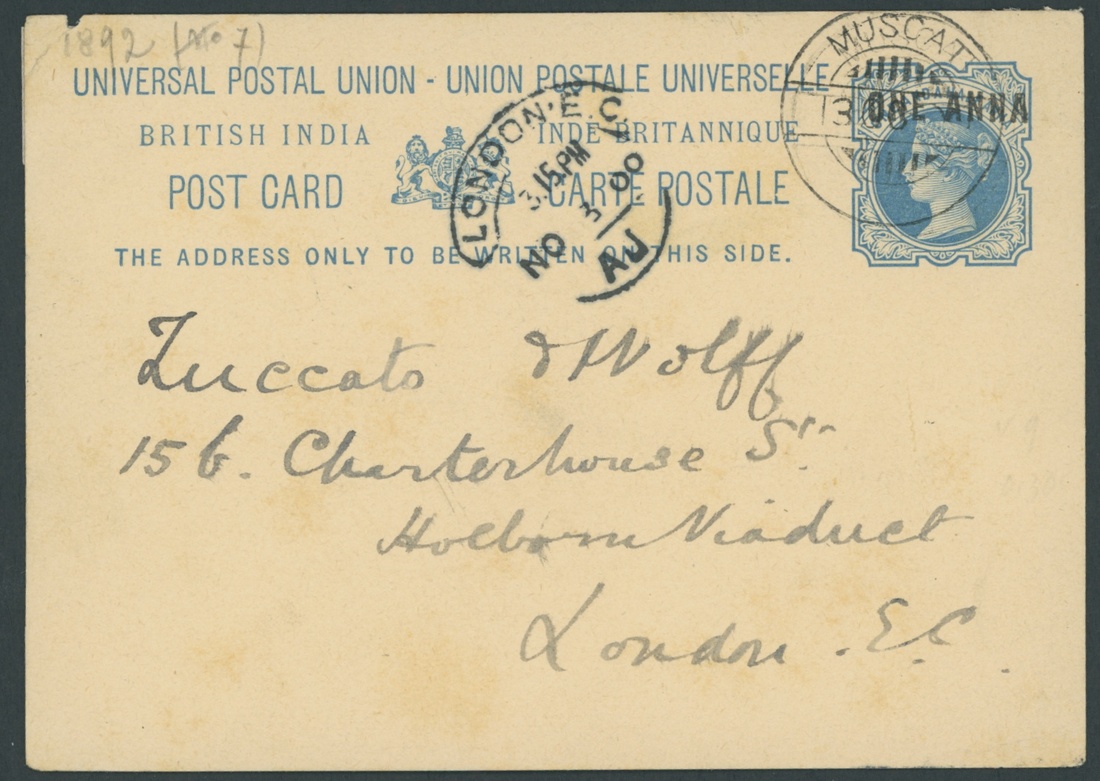 1892 (No 7)
UNIVERSAL POSTAL UNION - UNION POSTALE UNIVERSELLE
BRITISH INDIA INDE BRITANNIQUE
POST CARD CARTE POSTALE
THE ADDRESS ONLY TO BE WRITTEN ON THIS SIDE.
MUSCAT
13
ONE ANNA
LONDON·E.C.
3.15 PM
NO 3 00
AU
Zuccato & Wolff
15 b. Charterhouse St.
Holborn Viaduct
London. E.C.